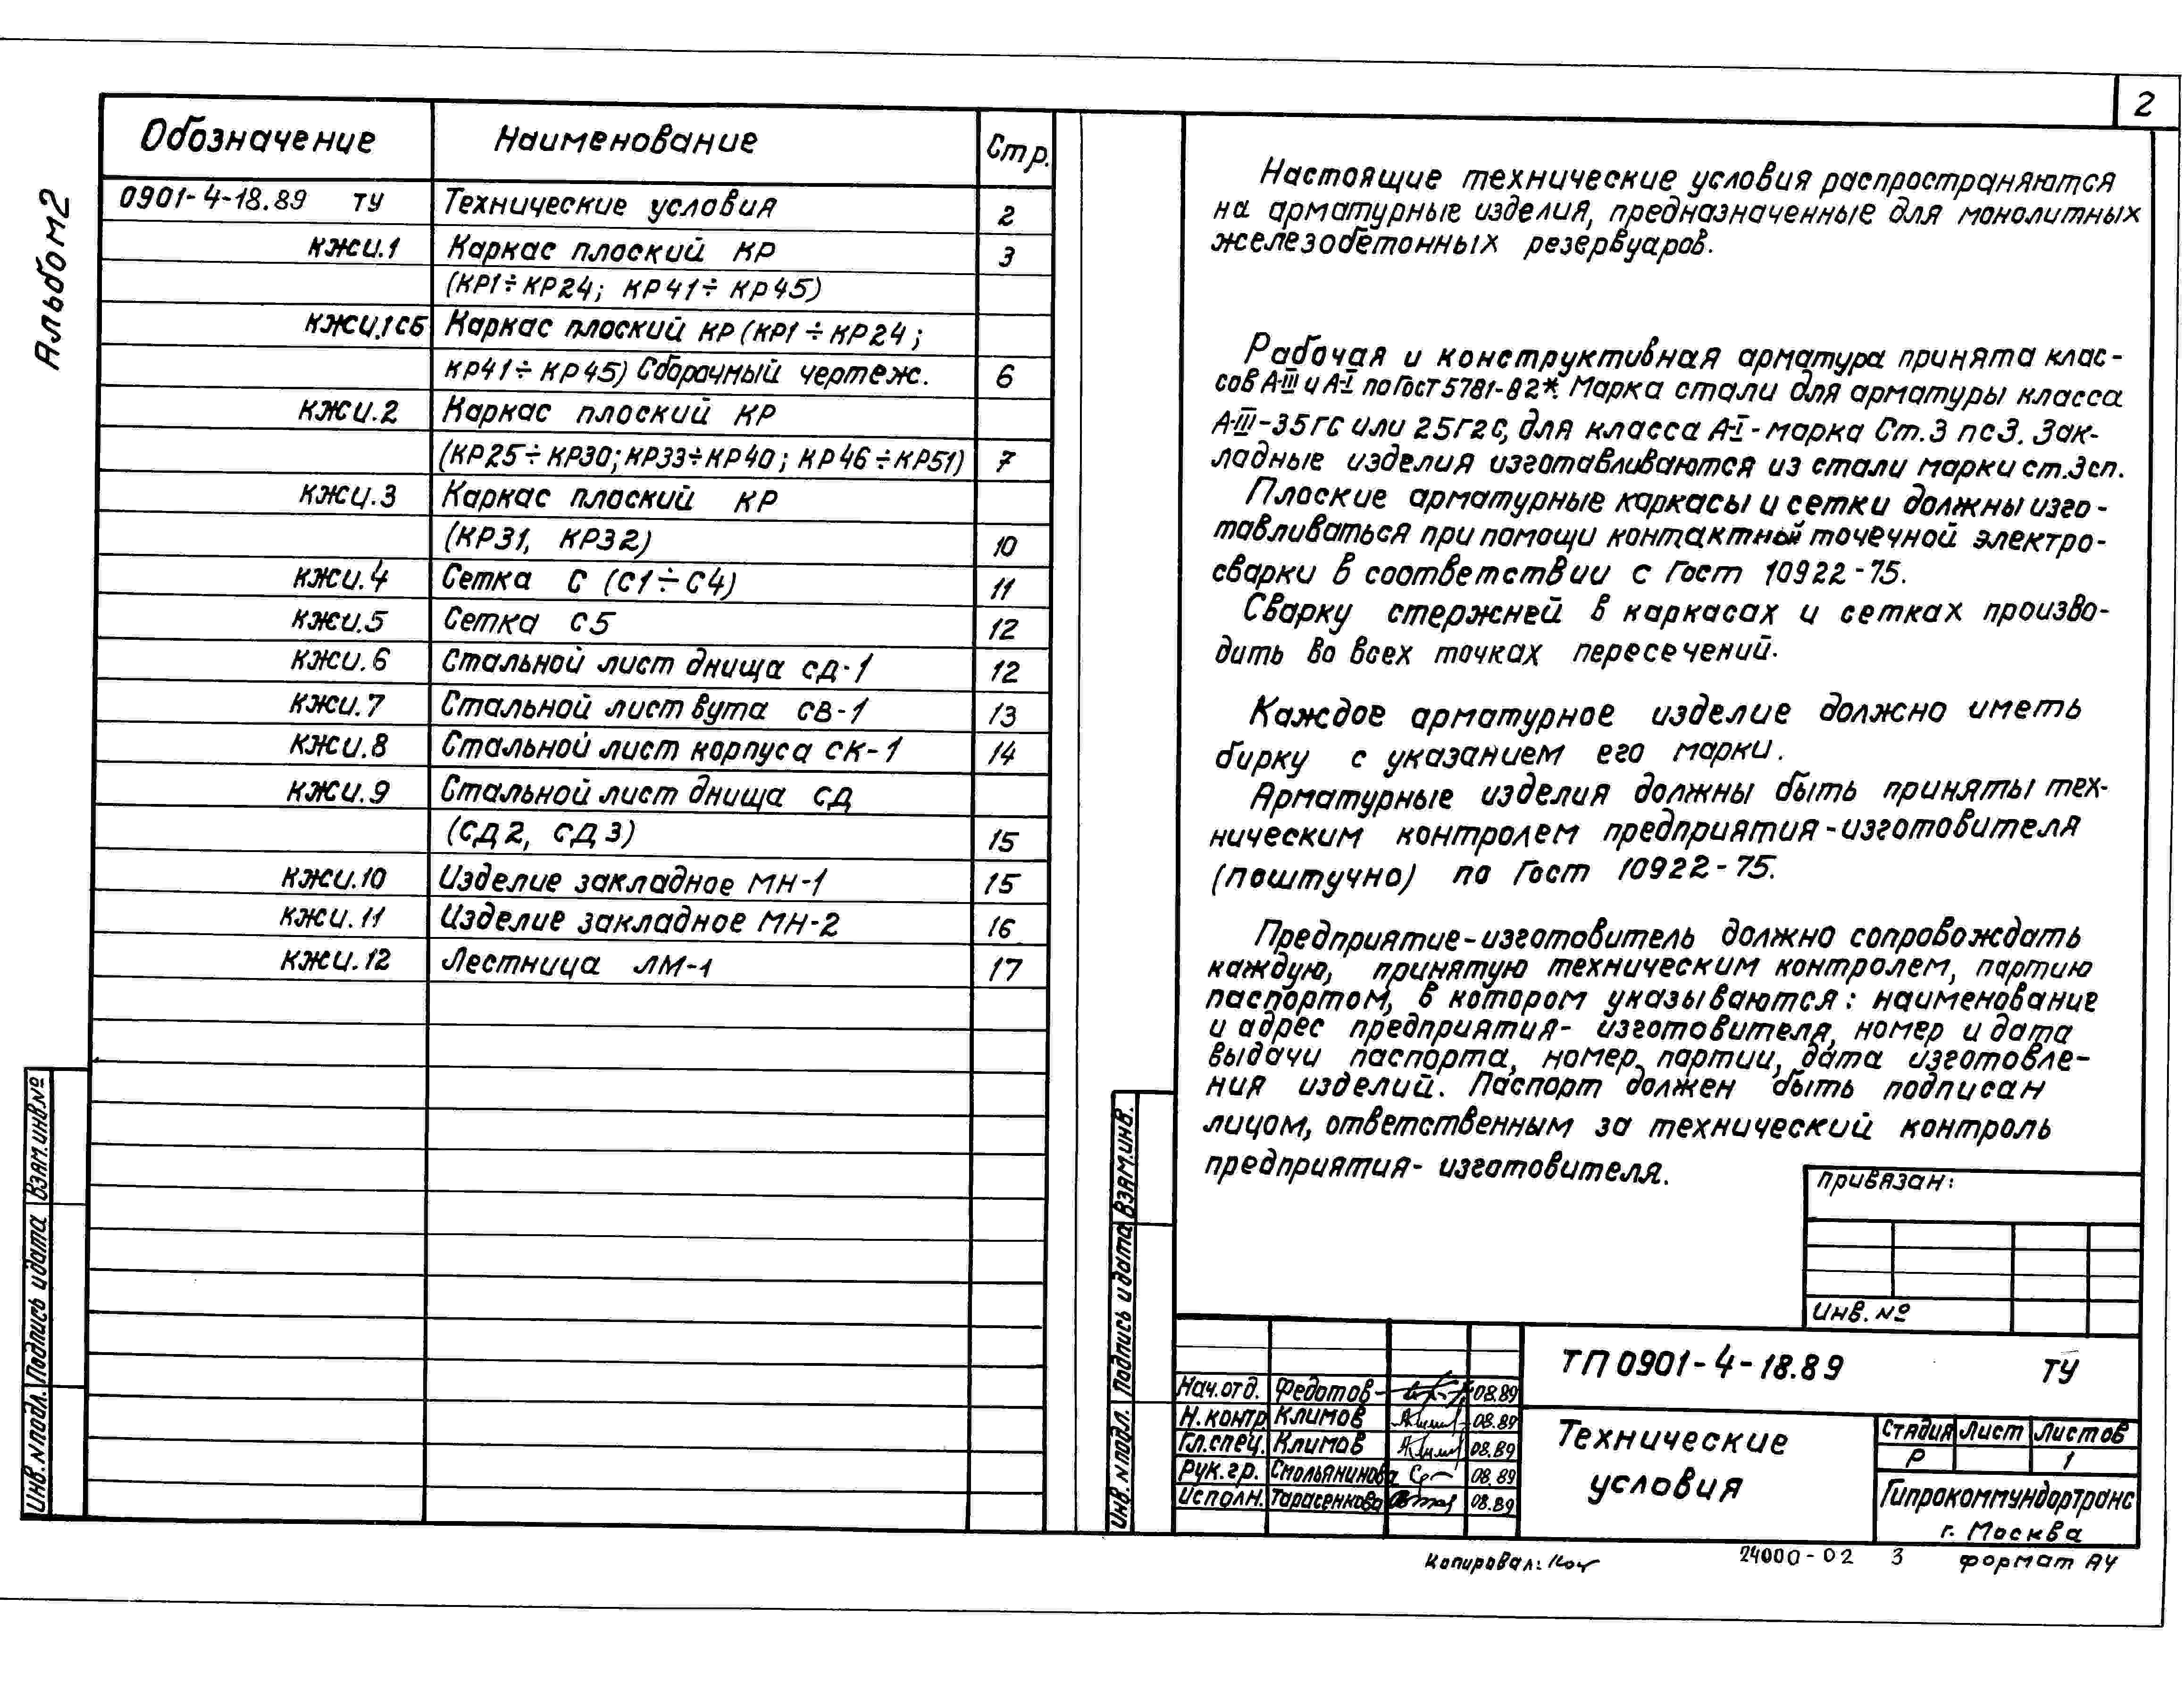 2
Альбом 2
Обозначение Наименование Стр.
0901-4-18.89 ТУ Технические условия 2
КЖИ.1 Каркас плоский КР 3
(КР1÷КР24; КР41÷КР45)
КЖИ.1СБ Каркас плоский КР (КР1÷КР24;
КР41÷КР45) Сборочный чертеж. 6
КЖИ.2 Каркас плоский КР
(КР25÷КР30; КР33÷КР40; КР46÷КР51) 7
КЖИ.3 Каркас плоский КР
(КР31, КР32) 10
КЖИ.4 Сетка С (С1÷С4) 11
КЖИ.5 Сетка С5 12
КЖИ.6 Стальной лист днища СД-1 12
КЖИ.7 Стальной лист вута СВ-1 13
КЖИ.8 Стальной лист корпуса СК-1 14
КЖИ.9 Стальной лист днища СД
(СД2, СД3) 15
КЖИ.10 Изделие закладное МН-1 15
КЖИ.11 Изделие закладное МН-2 16
КЖИ.12 Лестница ЛМ-1 17
Инв.№подл. Подпись и дата Взям.инв.№
Настоящие технические условия распространяются
на арматурные изделия, предназначенные для монолитных
железобетонных резервуаров.
Рабочая и конструктивная арматура принята клас-
сов А-III и А-I по Гост 5781-82*. Марка стали для арматуры класса
А-III-35ГС или 25Г2С, для класса А-I-марка Ст.3 пс3. Зак-
ладные изделия изготавливаются из стали марки ст.3сп.
Плоские арматурные каркасы и сетки должны изго-
тавливаться при помощи контактный точечной электро-
сварки в соответствии с Гост 10922-75.
Сварку стержней в каркасах и сетках произво-
дить во всех точках пересечений.
Каждое арматурное изделие должно иметь
бирку с указанием его марки.
Арматурные изделия должны быть приняты тех-
ническим контролем предприятия-изготовителя
(поштучно) по Гост 10922-75.
Предприятие-изготовитель должно сопровождать
каждую, принятую техническим контролем, партию
паспортом, в котором указываются: наименование
и адрес предприятия-изготовителя, номер и дата
выдачи паспорта, номер партии, дата изготовле-
ния изделий. Паспорт должен быть подписан
лицом, ответственным за технический контроль
предприятия-изготовителя.
Инв.№подл. Подпись и дата Взям.инв.
Привязан:
Инв.№
Нач.отд. Федотов 08.89
Н.контр. Климов 08.89
Гл.спец. Климов 08.89
Рук.гр. Смольянинова 08.89
Исполн. Тарасенкова 08.89
ТП 0901-4-18.89 ТУ
Технические
условия
Стадия Лист Листов
Р 1
Гипрокоммундортранс
г. Москва
Копировал:
24000-02 3 формат А4